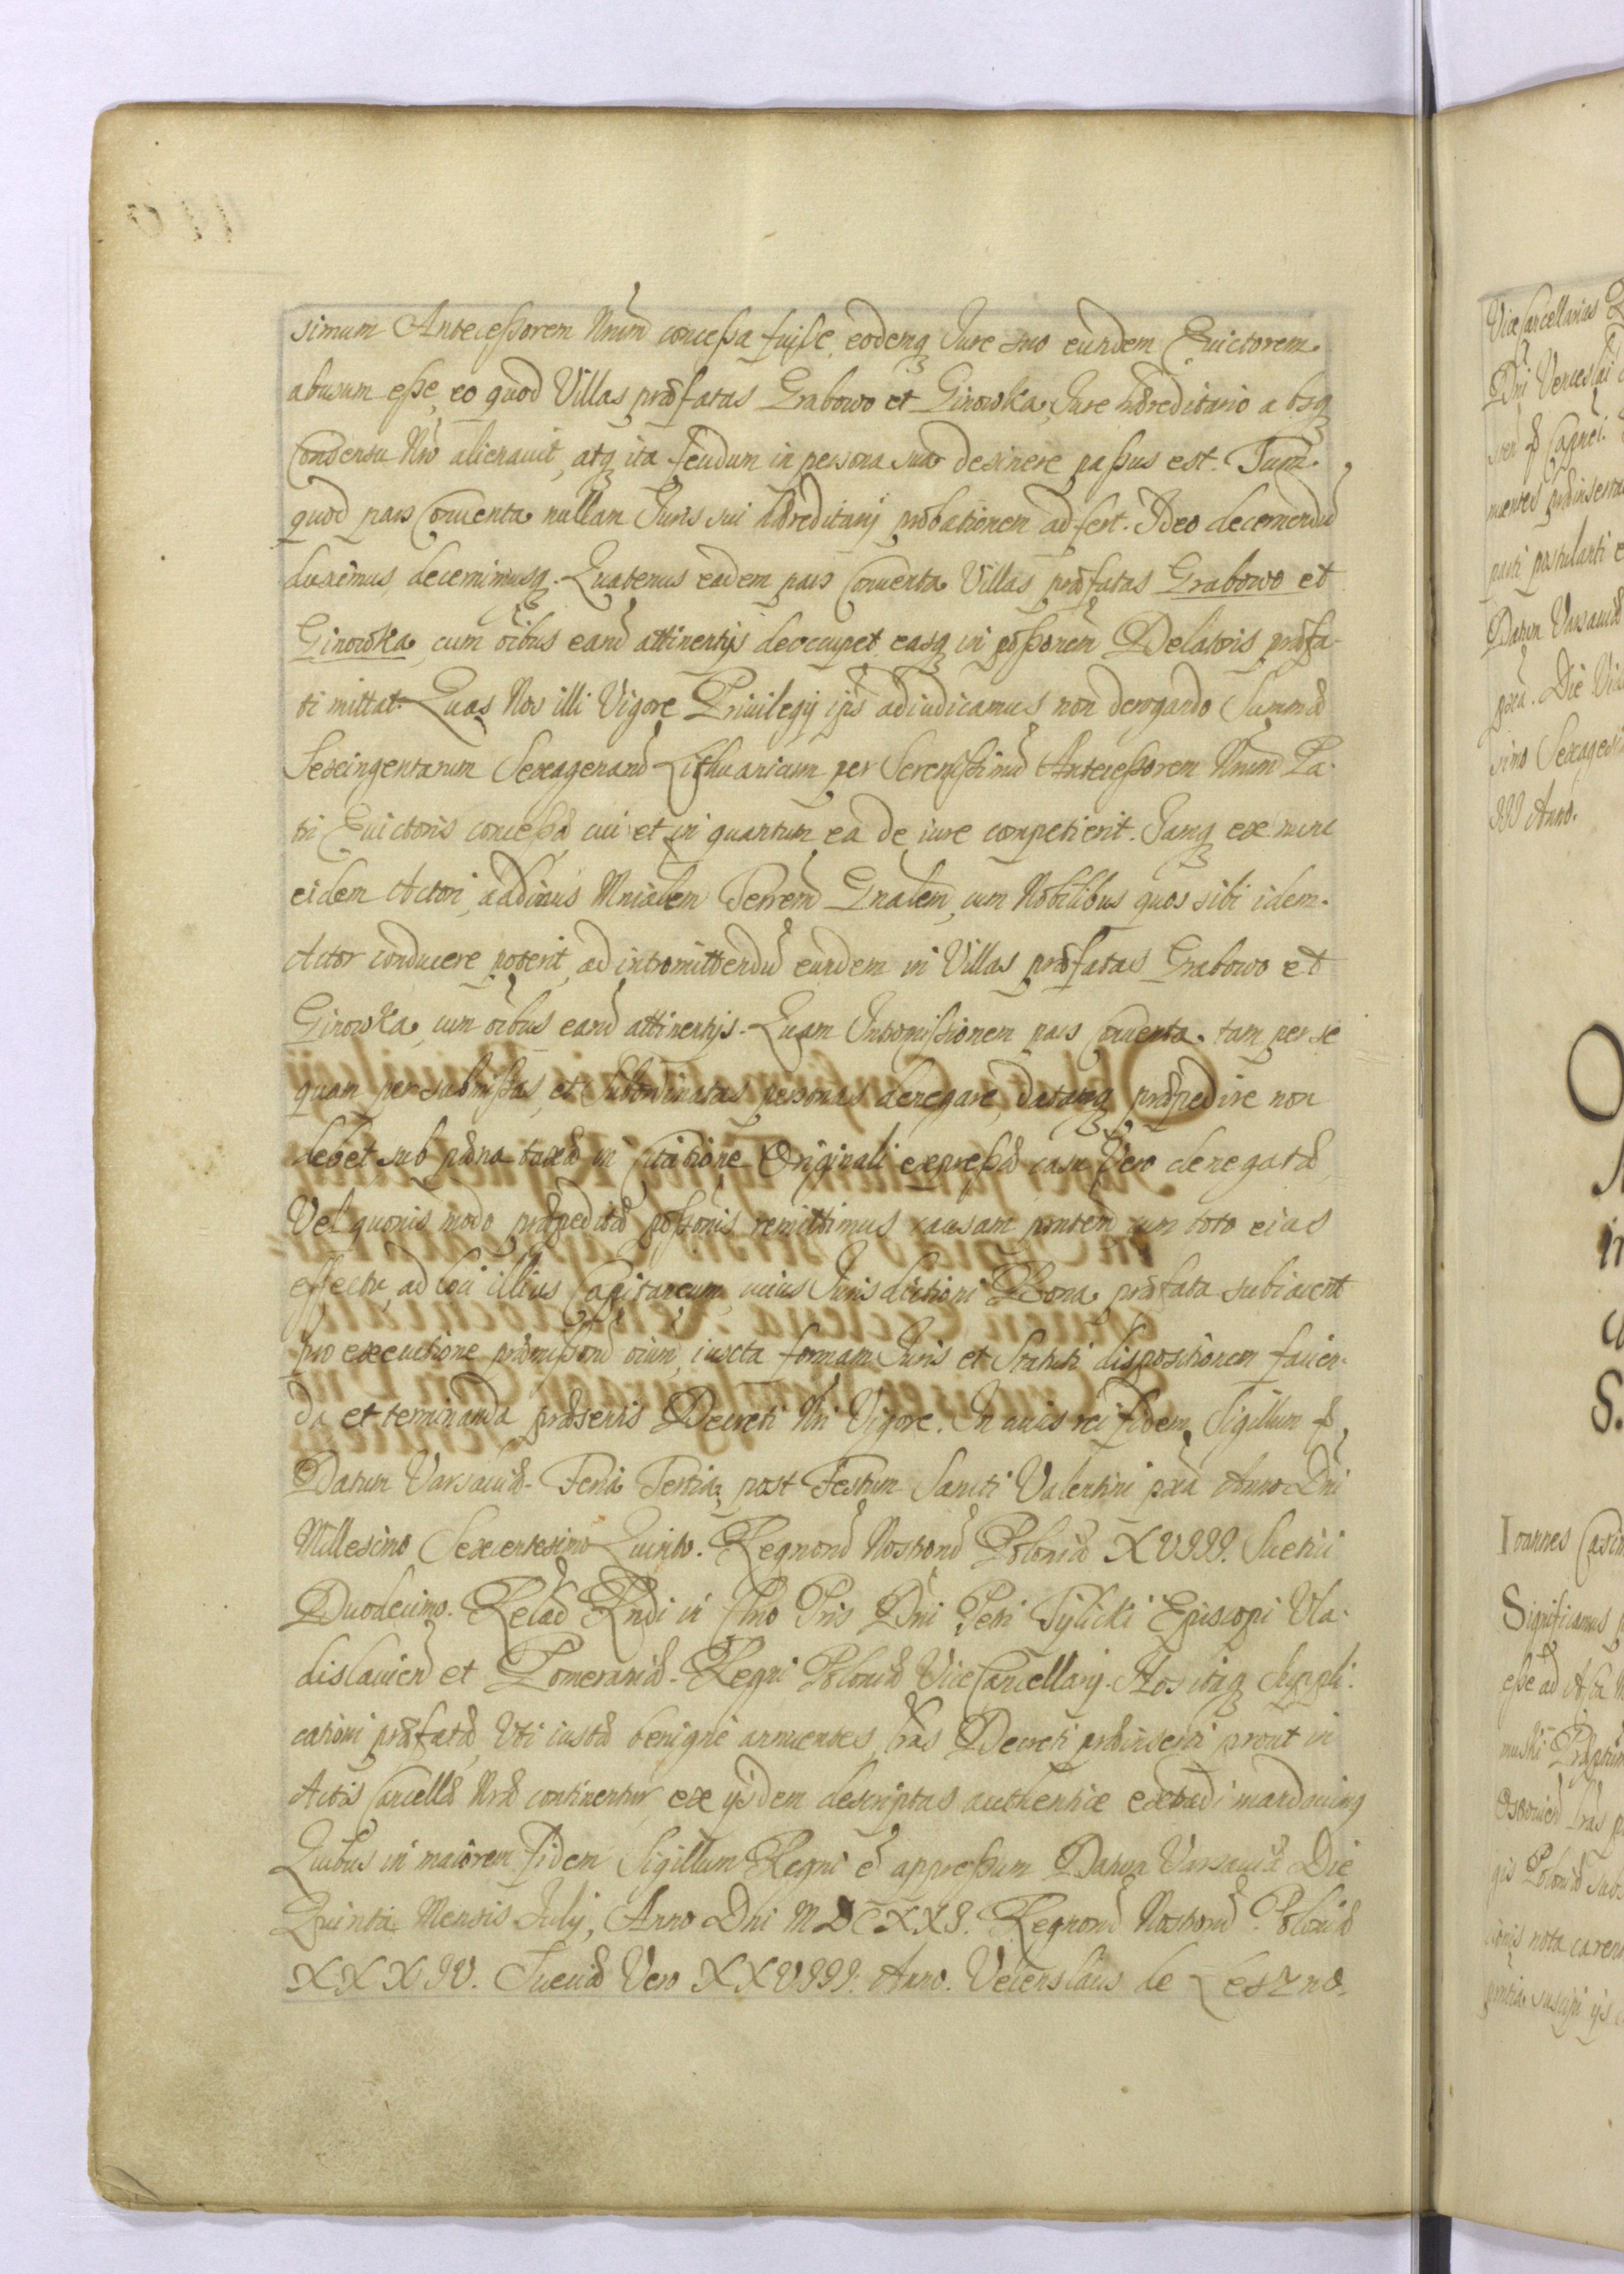 simum Antecessorem Nrum concessa fuisse, eodemq Jure suo eundem Evictorem
abusum esse, eo quod Villas præfatas Grabowo et Ginowka, Jure hæreditario absq
Consensu Nro alienavit, atq ita feudum in persona sua desinere passus est. Tum
quod pars Conventa nullam Juris sui hæreditarij probationem adfert. Ideo decernendu
duximus, decernimusq. Quatenus eadem pars Conventa Villas præfatas Grabowo et
Ginowka, cum oibus earu attinentijs deoccupet, easq in possonem Delatoris præfa-
ti mittat. Quas Nos illi Vigore Privilegij ipis adiudicamus non derogando Summæ
Sexcingentarum Sexagenaru Lithuanicarum per Serenissimu Antecessorem Nrum Pa-
tri Evictoris concessæ, cui et in quantum ea de iure competierit. Jamq ex nunc
eidem Actori, addimus Mnialem Terrem Gnalem, cum Nobilibus quos sibi idem
Actor conducere poterit, ad intromittendu eundem in Villas præfatas Grabowo et
Ginowka, cum oibus earu attinentijs. Quam Intromissionem pars Conventa tam per se
quam per submissas, et subordinatas personas denegare, datamq præpedire non
debet sub pœna taxæ in Citatione Originali expressæ casu Vero denegatæ
Vel quovis modo præpeditæ possonis remittimus causam pntem cum toto eius
effectu, ad loci illius Capitaneum, cuius Jurisdictioni Bona præfata subiacent
pro executione præmissoru oium, iuxta formam Juris et Statuti dispositionem facien-
da et terminanda præsentis Decreti Nri Vigore. In cuius rei fidem, Sigillum &
Datum Varsaviæ Feria Tertia post Festum Sancti Valentini pxa Anno Dni
Millesimo Sexcentesimo Quinto. Regnoru Nostroru Poloniæ XVIII. Suetiæ
Duodecimo. Relao Rndi in Chro Pris Dni Petri Tylicki Episcopi Vla-
dislavien et Pomeraniæ Regni Poloniæ ViceCancellarij. Nos itaq Suppli-
cationi præfatæ, Uti iustæ benigne annuentes, lras Decreti præinserti prout in
Actis Cancellæ Nræ continentur ex ijsdem descriptas authentice extradi mandavimq
Quibus in maiorem fidem Sigillum Regni e appressum Datum Varsaviæ Die
Quinta Mensis July, Anno Dni MDCXXI. Regnoru Nostroru Poloniæ
XXXIV. Sueciæ Vero XXVIII. Anno. Venceslaus de Leszno